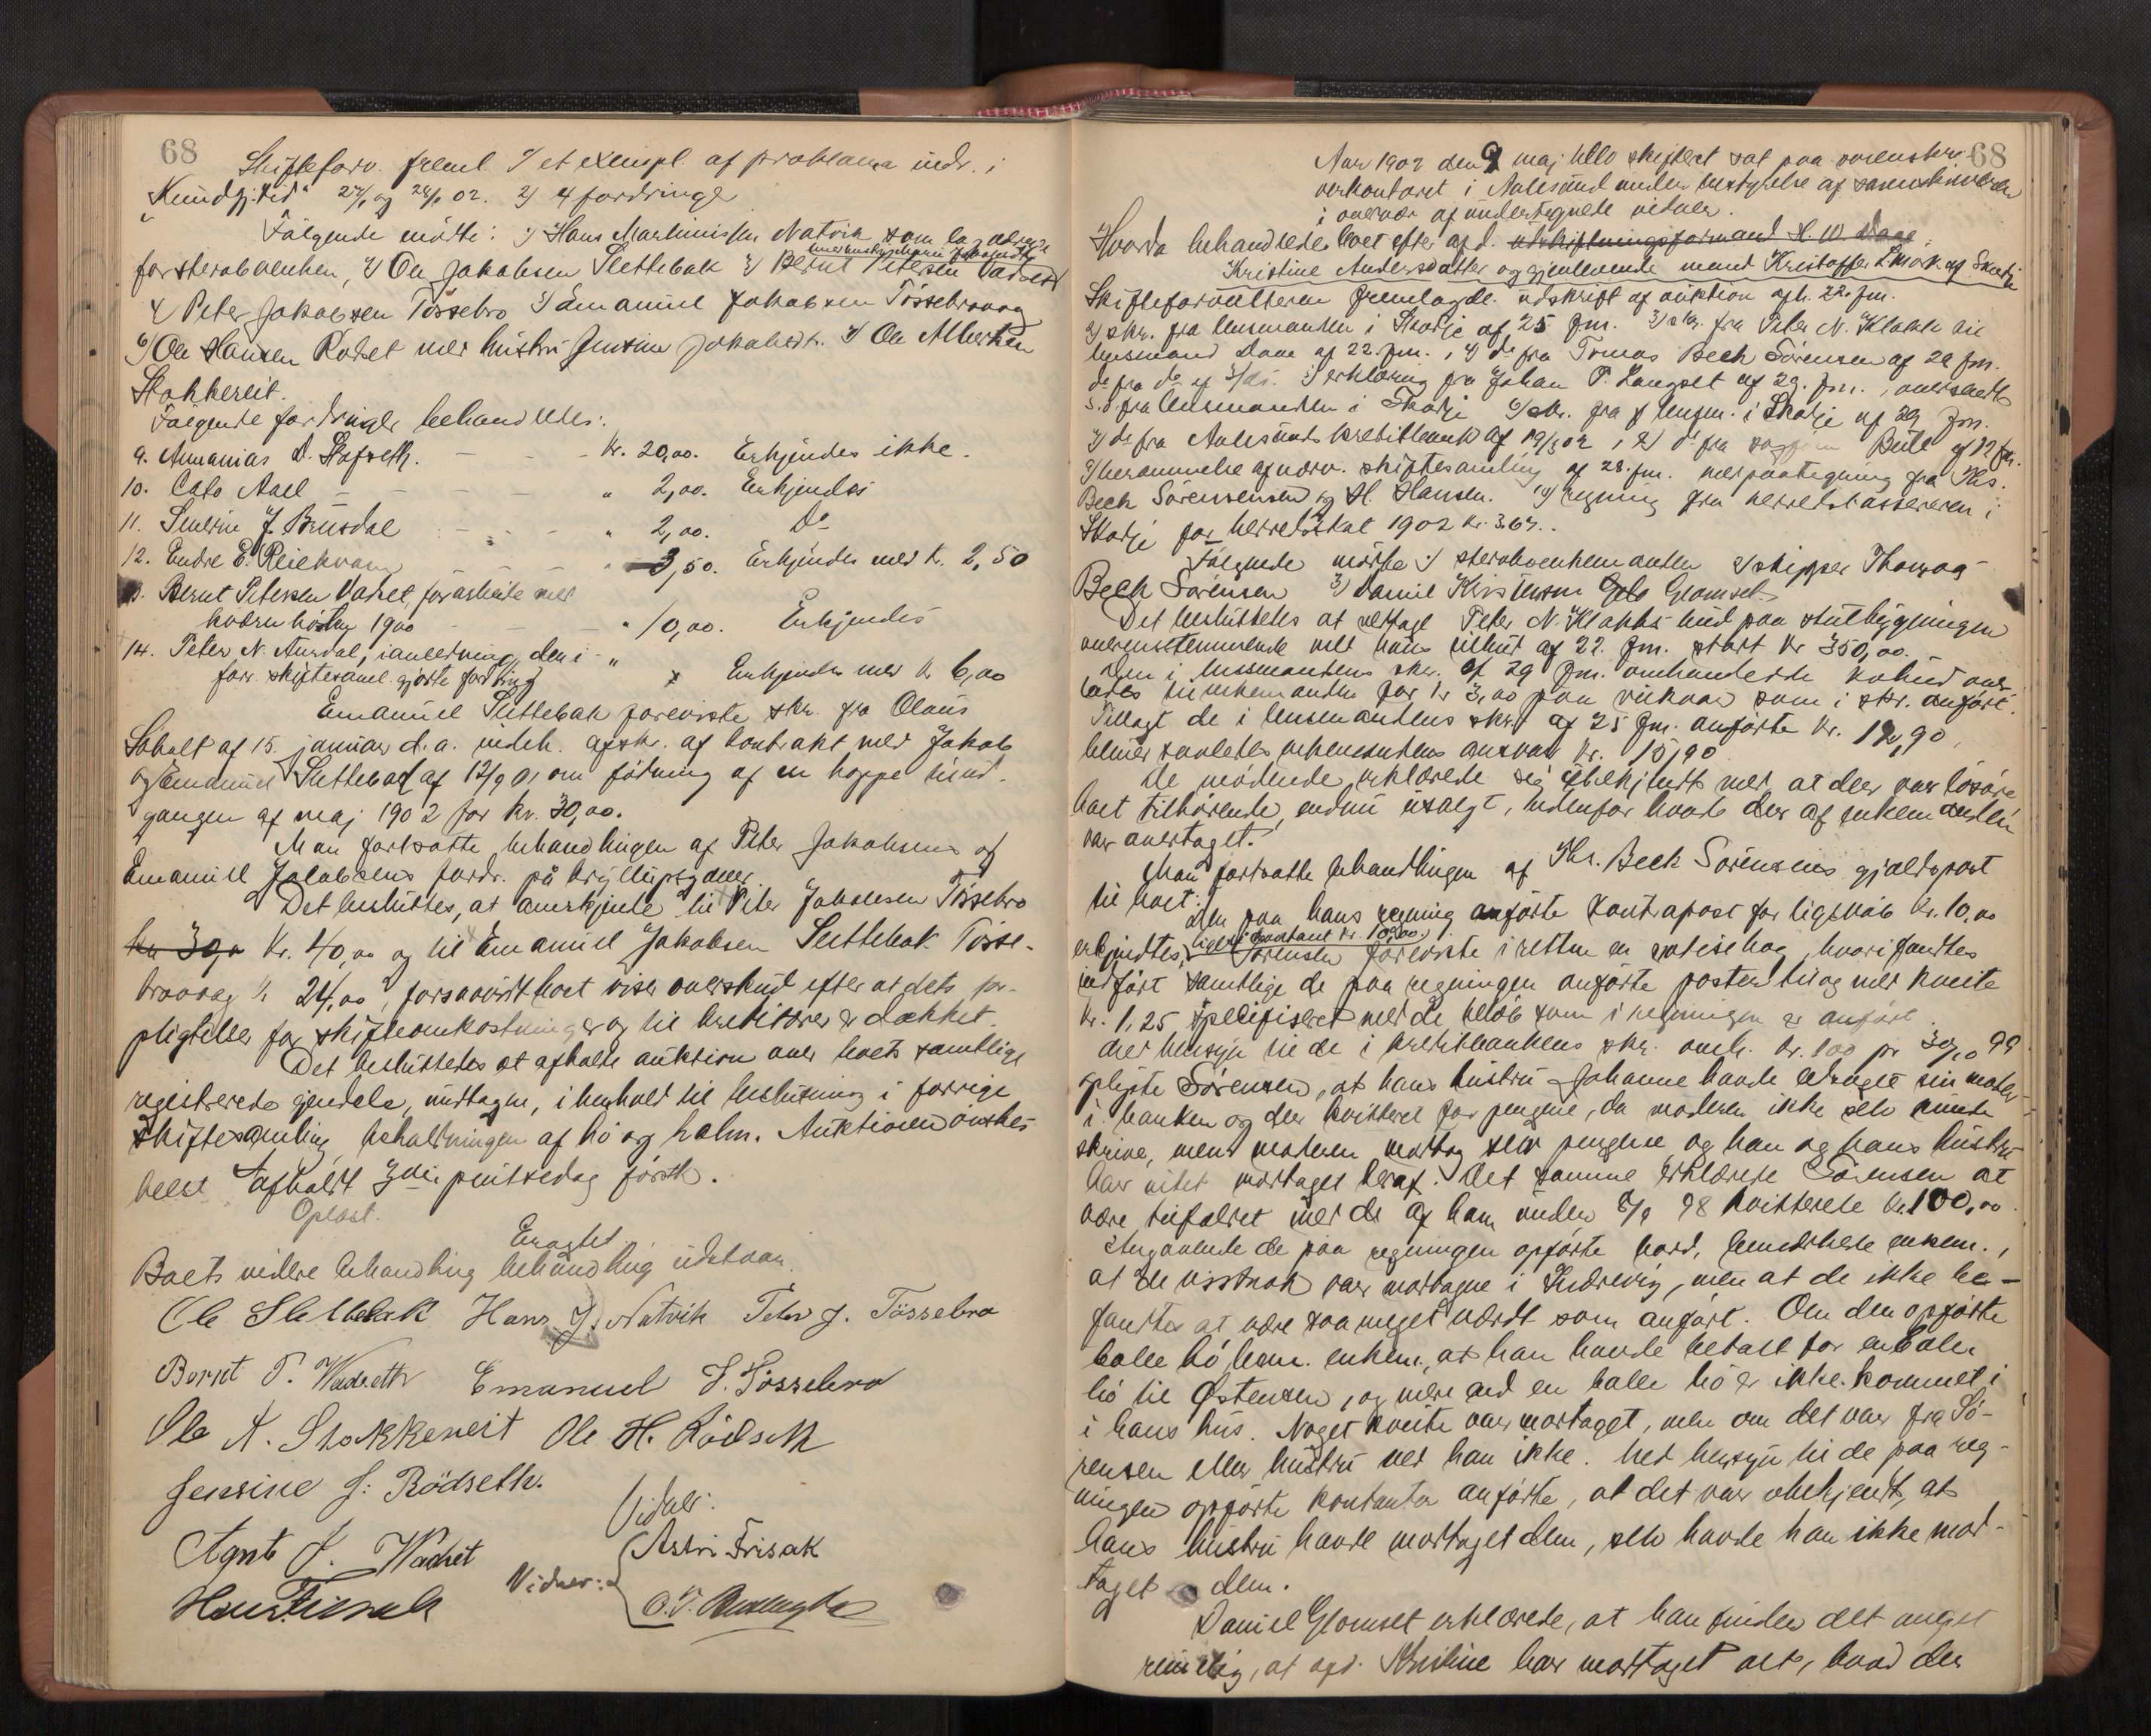 68
Skifteforv. freml 1/ et exempl. af proklama indr. i
"Kundgj.tid" 27/1 og 28/1 02. 2) 4 fordringe
Følgende mötte: 1/ Hans Martinussen Natvik som lagverge
for sterboenken, 2/ Ole Jakobsen Slettebak 3/ Bernt Petersen Vadset
4 Peter Jakobsen Tössebro 5) Emanuel Jakobsen Tössebrovaag
6) Ole Hansen Rödset med hustru Jensine Jakobsdt. 7/ Ole Albertsen
Stokkereit.
Følgende fordringer behandledes:
9. Annanias D. Hofseth. — — - kr. 20,00. Erkjendes ikke.
10. Cato Aall — — — — " 2,00. Erkjendes
11. Severin J. Brusdal — — — " 2,00. Do
12. Endre E. Reiekvam " 3,50. Erkjendes med kr. 2,50
13. Bernt Petersen Vadset for arbeide med
kværn hösten 1900 — — — " 10,00. Erkjendes
14. Peter N. Aursdal, i anledning den i "
forr. skiftesaml. gjorte fordring x Erkjendes med kr 6,00
Emanuel Slettebak foreviste skr. fra Olaus
Soholt af 15. januar d.a. indeh. afskr. af kontrakt med Jakob
og Emanuel Slettebak af 12/9 01 om födning af en hoppe til ud-
gangen af maj 1902 for kr. 30,00.
Man fortsatte behandlingen af Peter Jakobsens og
Emanuel Jakobsens fordr. på bryllupsgaver.
Det besluttes, at anerkjende til Peter Jakobsen Tössebro
kr 30,00 Kr. 40,00 og til Emanuel Jakobsen Slettebak Tösse-
brovaag kr 24,00, forsaavidt boet viser overskud efter at dets for-
pligtelser for skifteomkostninger og til kreditorer er dækket.
Det besluttedes at afholde auktion over boets samtlige
registrerede ejendele, undtagen, i henhold til beslutning i forrige
skiftesamling, beholdningen af hö og halm. Auktionen önskes
helst afholdt 3die pintsedag förstk.
Oplæst.
Eragtet
Boets videre behandling behandling udstaar.
Ole Slettebak Hans J. Natvik Peter J. Tössebro
Bernt P. Wadseth Emanuel J. Tössebro
Ole A. Stokkereit Ole H. Rödseth
Jensine J: Rödseth.
Agnt J. Wadset
Hans Frisak
Vidner:
Vidner: Astri Frisak
68
Aar 1902 den 9 maj blev skifteret sat paa sorenskri-
verkontoret i Aalesund under bestyrelse af sorenskriveren
i overvær af undertegnede vidner.
Hvorda behandledes boet efter afd. udskiftningsformand H. W. Daae
Kristine Andersdatter og gjenlevende mand Kristoffer Lmork af Skodje
Skifteforvalteren fremlagde udskrift af auktion afh. 22. fm.
2) skr. fra lensmanden i Skodje af 25 fm. 3) skr. fra Peter N. Klokk til
lensmand Daae af 22. fm., 4) do fra Tomas Beck Sörensen af 29 fm.
do fra do af 3/ds. 5) erklæring fra Johan P. Langset af 29. fm., oversendt
s.d. fra lensmanden i Skodje 6) skr. fra lensm. i Skodje af 29 fm.
7) do fra Aalesunds kreditbank af 19/3 02, 8) do fra sagfører Bull af 12 fm.
9) berammelse af nærv. skiftesamling af 28. fm. med paategning fra Ths.
Beck Sörensen og H. Hansen. 10) regning fra herredskassereren i
Skodje for herredsskat 1902 kr. 3.67.
Følgende mötte 1) sterboenkemanden 2) skipper Thomas
Beck Sörensen 3) Daniel Kristensen Glomset
Det besluttedes at vedtage Peter N. Klokks bud paa stutbygningen
overensstemmende med hans tilbud af 22. fm. stort kr 350,00.
Den i lensmandens skr. af 29 fm. omhandlede kohud over-
lades enkemanden for kr 3,00 paa vilkaar som i skr. anført.
Tillagt de i lensmandens skr. af 25 fm. anførte kr. 12,90,
bliver saaledes enkemandens ansvar kr. 15,90
De mødende erklærede sig ubekjendt med at der var løsöre
boet tilhörende, endnu usolgt, udenfor hvad der af enkemanden
var overtaget.
Man fortsatte behandlingen af Ths. Beck Sörensens gjældspost
til boet:
Den paa hans regning anførte kontrapost for ligskab kr. 10,00
erkjendtes, ligesaa kontant kr. 10,00. Sörensen foreviste i retten en notisebog, hvori fandtes
indfört samtlige de paa regningen anførte poster til og med hveite
kr. 1,25 specifiseret med de beløb som i regningen er anført
Med hensyn til de i kreditbankens skr. omh. kr. 100 pr 30/10 99
oplyste Sörensen, at hans hustru Johanne havde ledsaget sin moder
i banken og der kvitteret for pengene, da moderen ikke selv kunde
skrive, men moderen modtog selv pengene og han og hans hustru
har intet modtaget deraf. Det samme erklærede Sörensen at
være tilfældet med de af ham under 5/9 98 kvitterede kr. 100,00.
Angaaende de paa regningen opførte bord, bemærkede enkem.,
at de visstnok var modtagne i Sudrevig, men at de ikke be-
fandtes at være saa meget værdt som anført. Om den opførte
balle hö, bem. enkem., at han havde betalt for en balle
hö til Østensen, og mere end en balle hö er ikke kommet i
i hans hus. Noget kveite var modtaget, men om det var fra Sö-
rensen eller hustru ved han ikke. Med hensyn til de paa reg-
ningen opførte kontanter anførte, at det var ubekjendt, at
hans hustru havde modtaget dem, selv havde han ikke mod-
taget dem.
Daniel Glomset erklærede, at han finder det meget
rimelig, at afd. Kristine har modtaget alt, hvad der